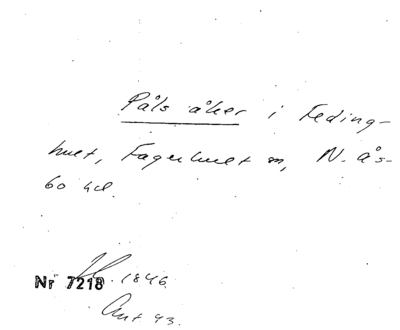 Påls åker i Feding-
hult, Fagerhult sn, N. ås-
bo hd.
Nr 7218. 1846
Ant 43.